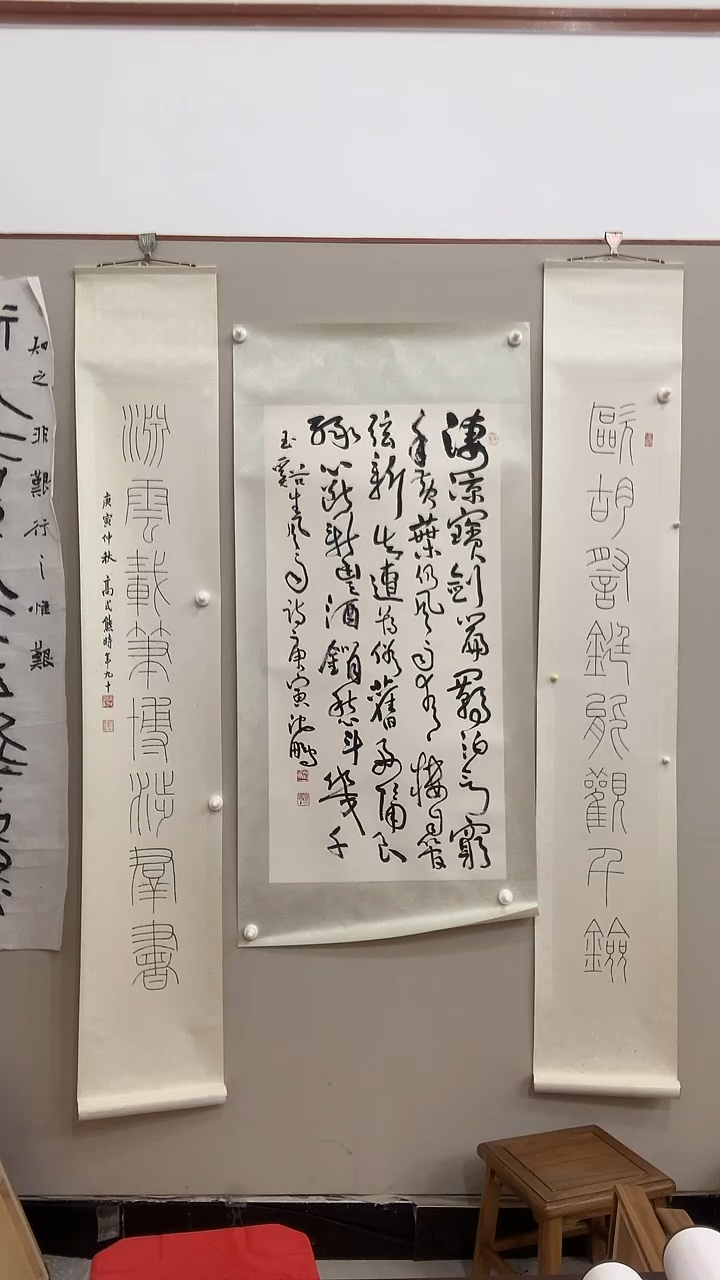 歐胡能觀千鐱
淒涼寶劍篇羈泊欲窮
年黃葉仍風雨青樓自管
弦新知遭薄俗舊好隔良
緣心斷新豐酒銷愁斗幾千
玉谿生風雨詩庚寅沈鵬
淵雲載筆博涉羣書
庚寅仲秋 高式熊時年九十
知之非艱行之惟艱